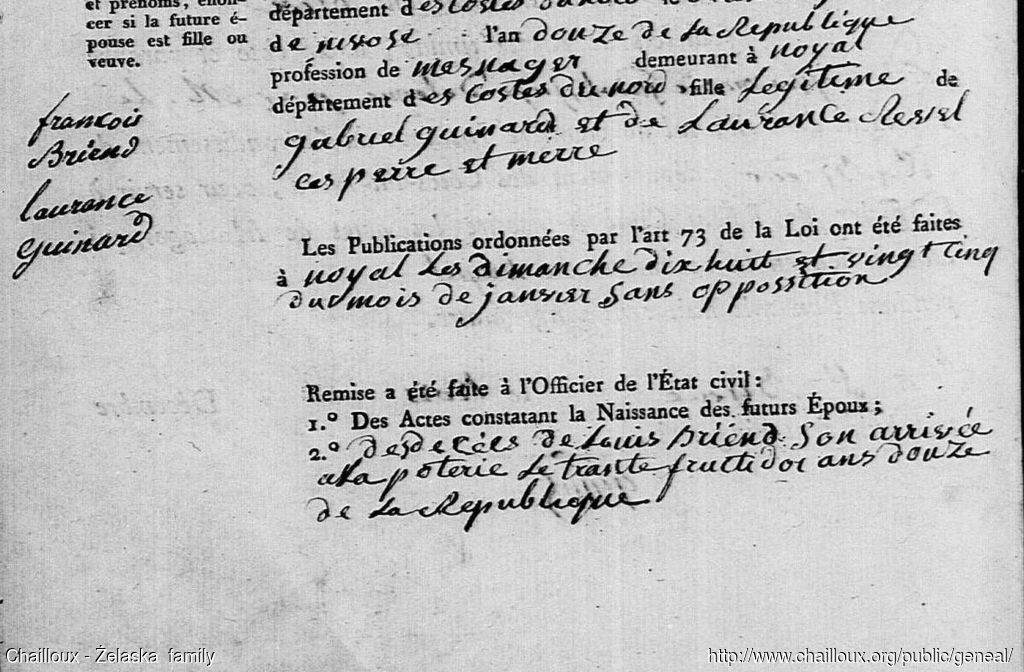 et prénoms, énon-
cer si la future é-
pouse est fille ou
veuve.
françois
Briend
laurance
guinard
département des Costes du nord le
de nivose l'an douze de La Republique
profession de mesnager demeurant à noyal
département des Costes du nord fille Legitime de
gabriel guinard et de Laurance
ces perre et merre
Les Publications ordonnées par l'art 73 de la Loi ont été faites
à noyal Les dimanche dix huit et vingt cinq
du mois de janvier Sans oppossition
Remise a été faite à l'Officier de l'État civil :
1.º Des Actes constatant la Naissance des futurs Époux ;
2.º de deCées de Louis Briend Son arrivée
a La poterie Le trante fructidor ans douze
de La Republique
Chailloux - Želaska family
http://www.chailloux.org/public/geneal/